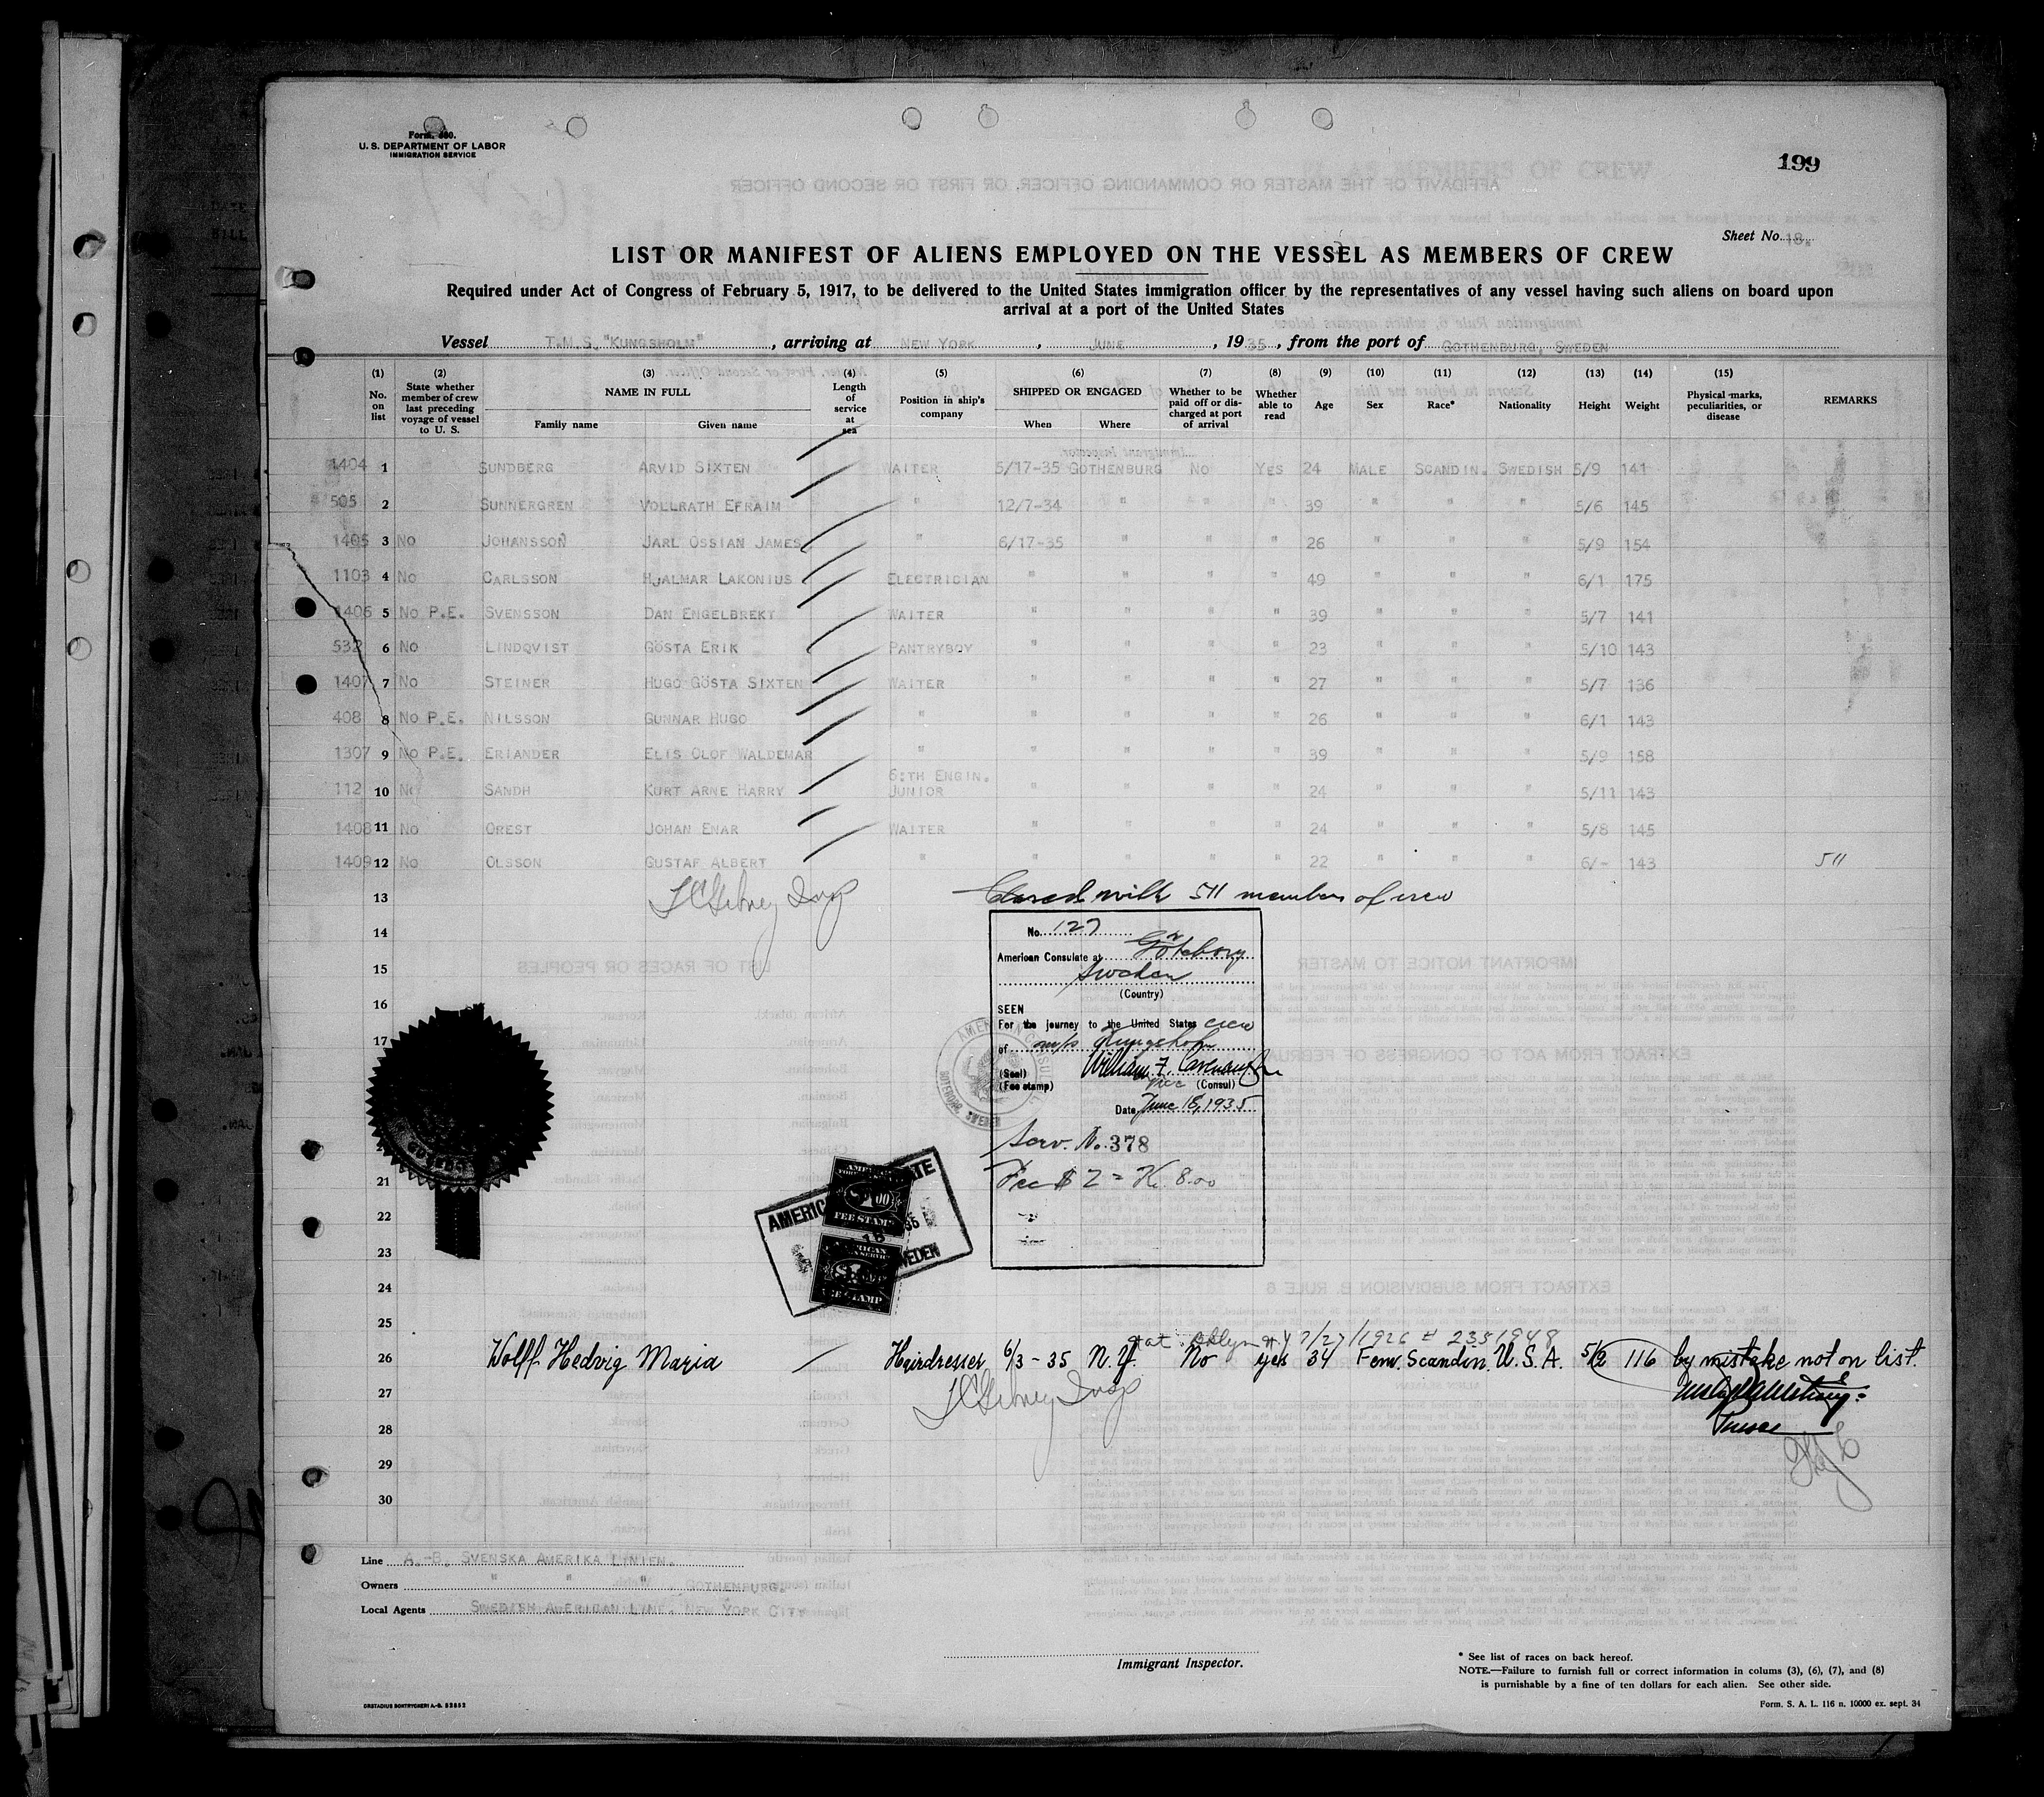 Form 680.
U. S. DEPARTMENT OF LABOR
IMMIGRATION SERVICE
199
Sheet No. 18.
LIST OR MANIFEST OF ALIENS EMPLOYED ON THE VESSEL AS MEMBERS OF CREW
Required under Act of Congress of February 5, 1917, to be delivered to the United States immigration officer by the representatives of any vessel having such aliens on board upon
arrival at a port of the United States
Vessel T.M.S. "KUNGSHOLM", arriving at NEW YORK, JUNE, 1935, from the port of GOTHENBURG, SWEDEN
(1) No. on list
(2) State whether member of crew last preceding voyage of vessel to U. S.
(3) NAME IN FULL Family name Given name
(4) Length of service at sea
(5) Position in ship's company
(6) SHIPPED OR ENGAGED When Where
(7) Whether to be paid off or discharged at port of arrival
(8) Whether able to read
(9) Age
(10) Sex
(11) Race*
(12) Nationality
(13) Height
(14) Weight
(15) Physical marks, peculiarities, or disease
REMARKS
1404 1 SUNDBERG ARVID SIXTEN WAITER 5/17-35 GOTHENBURG NO YES 24 MALE SCANDIN. SWEDISH 5/9 141
505 2 SUNNERGREN VOLLRATH EFRAIM " 12/7-34 " " " 39 " " " 5/6 145
1405 3 NO JOHANSSON JARL OSSIAN JAMES " 6/17-35 " " " 26 " " " 5/9 154
1103 4 NO CARLSSON HJALMAR LAKONIUS ELECTRICIAN " " " " 49 " " " 6/1 175
1406 5 NO P.E. SVENSSON DAN ENGELBREKT WAITER " " " " 39 " " " 5/7 141
532 6 NO LINDQVIST GÖSTA ERIK PANTRYBOY " " " " 23 " " " 5/10 143
1407 7 NO STEINER HUGO GÖSTA SIXTEN WAITER " " " " 27 " " " 5/7 136
408 8 NO P.E. NILSSON GUNNAR HUGO " " " " " 26 " " " 6/1 143
1307 9 NO P.E. ERIANDER ELIS OLOF WALDEMAR " " " " " 39 " " " 5/9 158
112 10 NO SANDH KURT ARNE HARRY 6:TH ENGIN. JUNIOR " " " " 24 " " " 5/11 143
1408 11 NO OREST JOHAN ENAR WAITER " " " " 24 " " " 5/8 145
1409 12 NO OLSSON GUSTAF ALBERT " " " " " 22 " " " 6/- 143 511
13 Insp Closed with 511 members of crew
14
15
16
17
21
22
23
24
25
No. 127
American Consulate at Göteborg
Sweden
(Country)
SEEN
For the journey to the United States crew
of m/s Kungsholm
William F. Cavenaugh
(Seal)
(Fee stamp)
vice (Consul)
Date June 18, 1935
Serv. No. 378
Fee $ 2 = Kr. 8.00
AMERICAN CONSUL
GOTEBORG, SWEDEN
FEE STAMP
FEE STAMP
nat. Bklyn N.Y 7/27/1926 # 2351948
26 Wolff Hedvig Maria Hairdresser 6/3-35 N.Y. No yes 34 Fem. Scandin. U.S.A. 5/2 116 by mistake not on list.
27 Insp
28 Purser
29
30
Line A.-B. SVENSKA AMERIKA LINIEN.
Owners " " " , GOTHENBURG.
Local Agents SWEDISH AMERICAN LINE, NEW YORK CITY
Immigrant Inspector.
* See list of races on back hereof.
NOTE.—Failure to furnish full or correct information in colums (3), (6), (7), and (8)
is purnishable by a fine of ten dollars for each alien. See other side.
Form. S. A. L. 116 n. 10000 ex. sept. 34